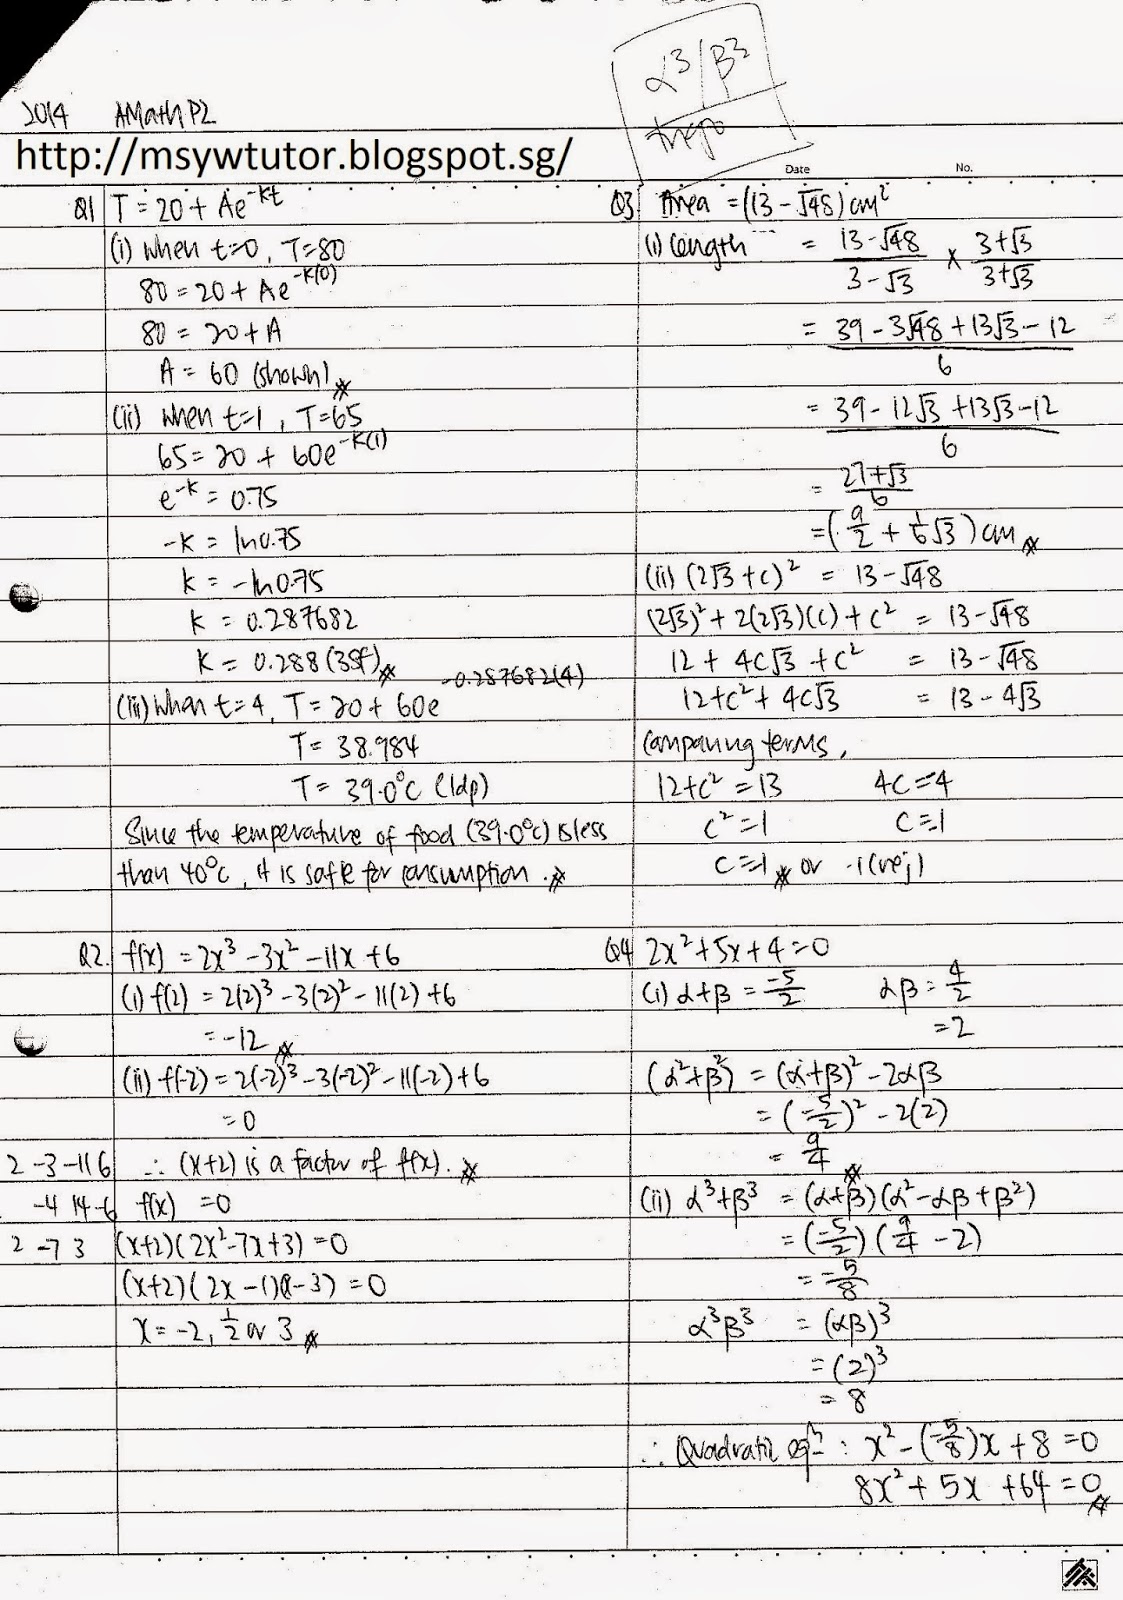 α³/β³
trego
2014 AMath P2
http://msywtutor.blogspot.sg/
Date No.
Q1 T = 20 + Ae^-kt
(i) when t=0, T=80
80 = 20 + Ae^-k(0)
80 = 20 + A
A = 60 (shown)
(ii) when t=1, T=65
65 = 20 + 60e^-k(1)
e^-k = 0.75
-k = ln 0.75
k = -ln 0.75
k = 0.287682
k = 0.288 (3sf)
(iii) when t=4, T = 20 + 60e^-0.287682(4)
T = 38.984
T = 39.0°C (1dp)
Since the temperature of food (39.0°C) is less
than 40°C, it is safe for consumption.
Q2. f(x) = 2x³ - 3x² - 11x + 6
(i) f(2) = 2(2)³ - 3(2)² - 11(2) + 6
= -12
(ii) f(-2) = 2(-2)³ - 3(-2)² - 11(-2) + 6
= 0
2 -3 -11 6 ∴ (x+2) is a factor of f(x).
-4 14 -6 f(x) = 0
2 -7 3 (x+2)(2x²-7x+3) = 0
(x+2)(2x-1)(x-3) = 0
x = -2, 1/2 or 3
Q3 Area = (13 - √48) cm²
(i) length = (13-√48)/(3-√3) × (3+√3)/(3+√3)
= (39 - 3√48 + 13√3 - 12)/6
= (39 - 12√3 + 13√3 - 12)/6
= (27+√3)/6
= (9/2 + 1/6 √3) cm
(ii) (2√3 + c)² = 13 - √48
(2√3)² + 2(2√3)(c) + c² = 13 - √48
12 + 4c√3 + c² = 13 - √48
12 + c² + 4c√3 = 13 - 4√3
Comparing terms,
12 + c² = 13 4c = -4
c² = 1 c = -1
c = 1 or -1 (rej)
Q4 2x² + 5x + 4 = 0
(i) α+β = -5/2 αβ = 4/2
= 2
(α²+β²) = (α+β)² - 2αβ
= (-5/2)² - 2(2)
= 9/4
(ii) α³+β³ = (α+β)(α²-αβ+β²)
= (-5/2)(9/4 - 2)
= -5/8
α³β³ = (αβ)³
= (2)³
= 8
∴ Quadratic eqn : x² - (-5/8)x + 8 = 0
8x² + 5x + 64 = 0